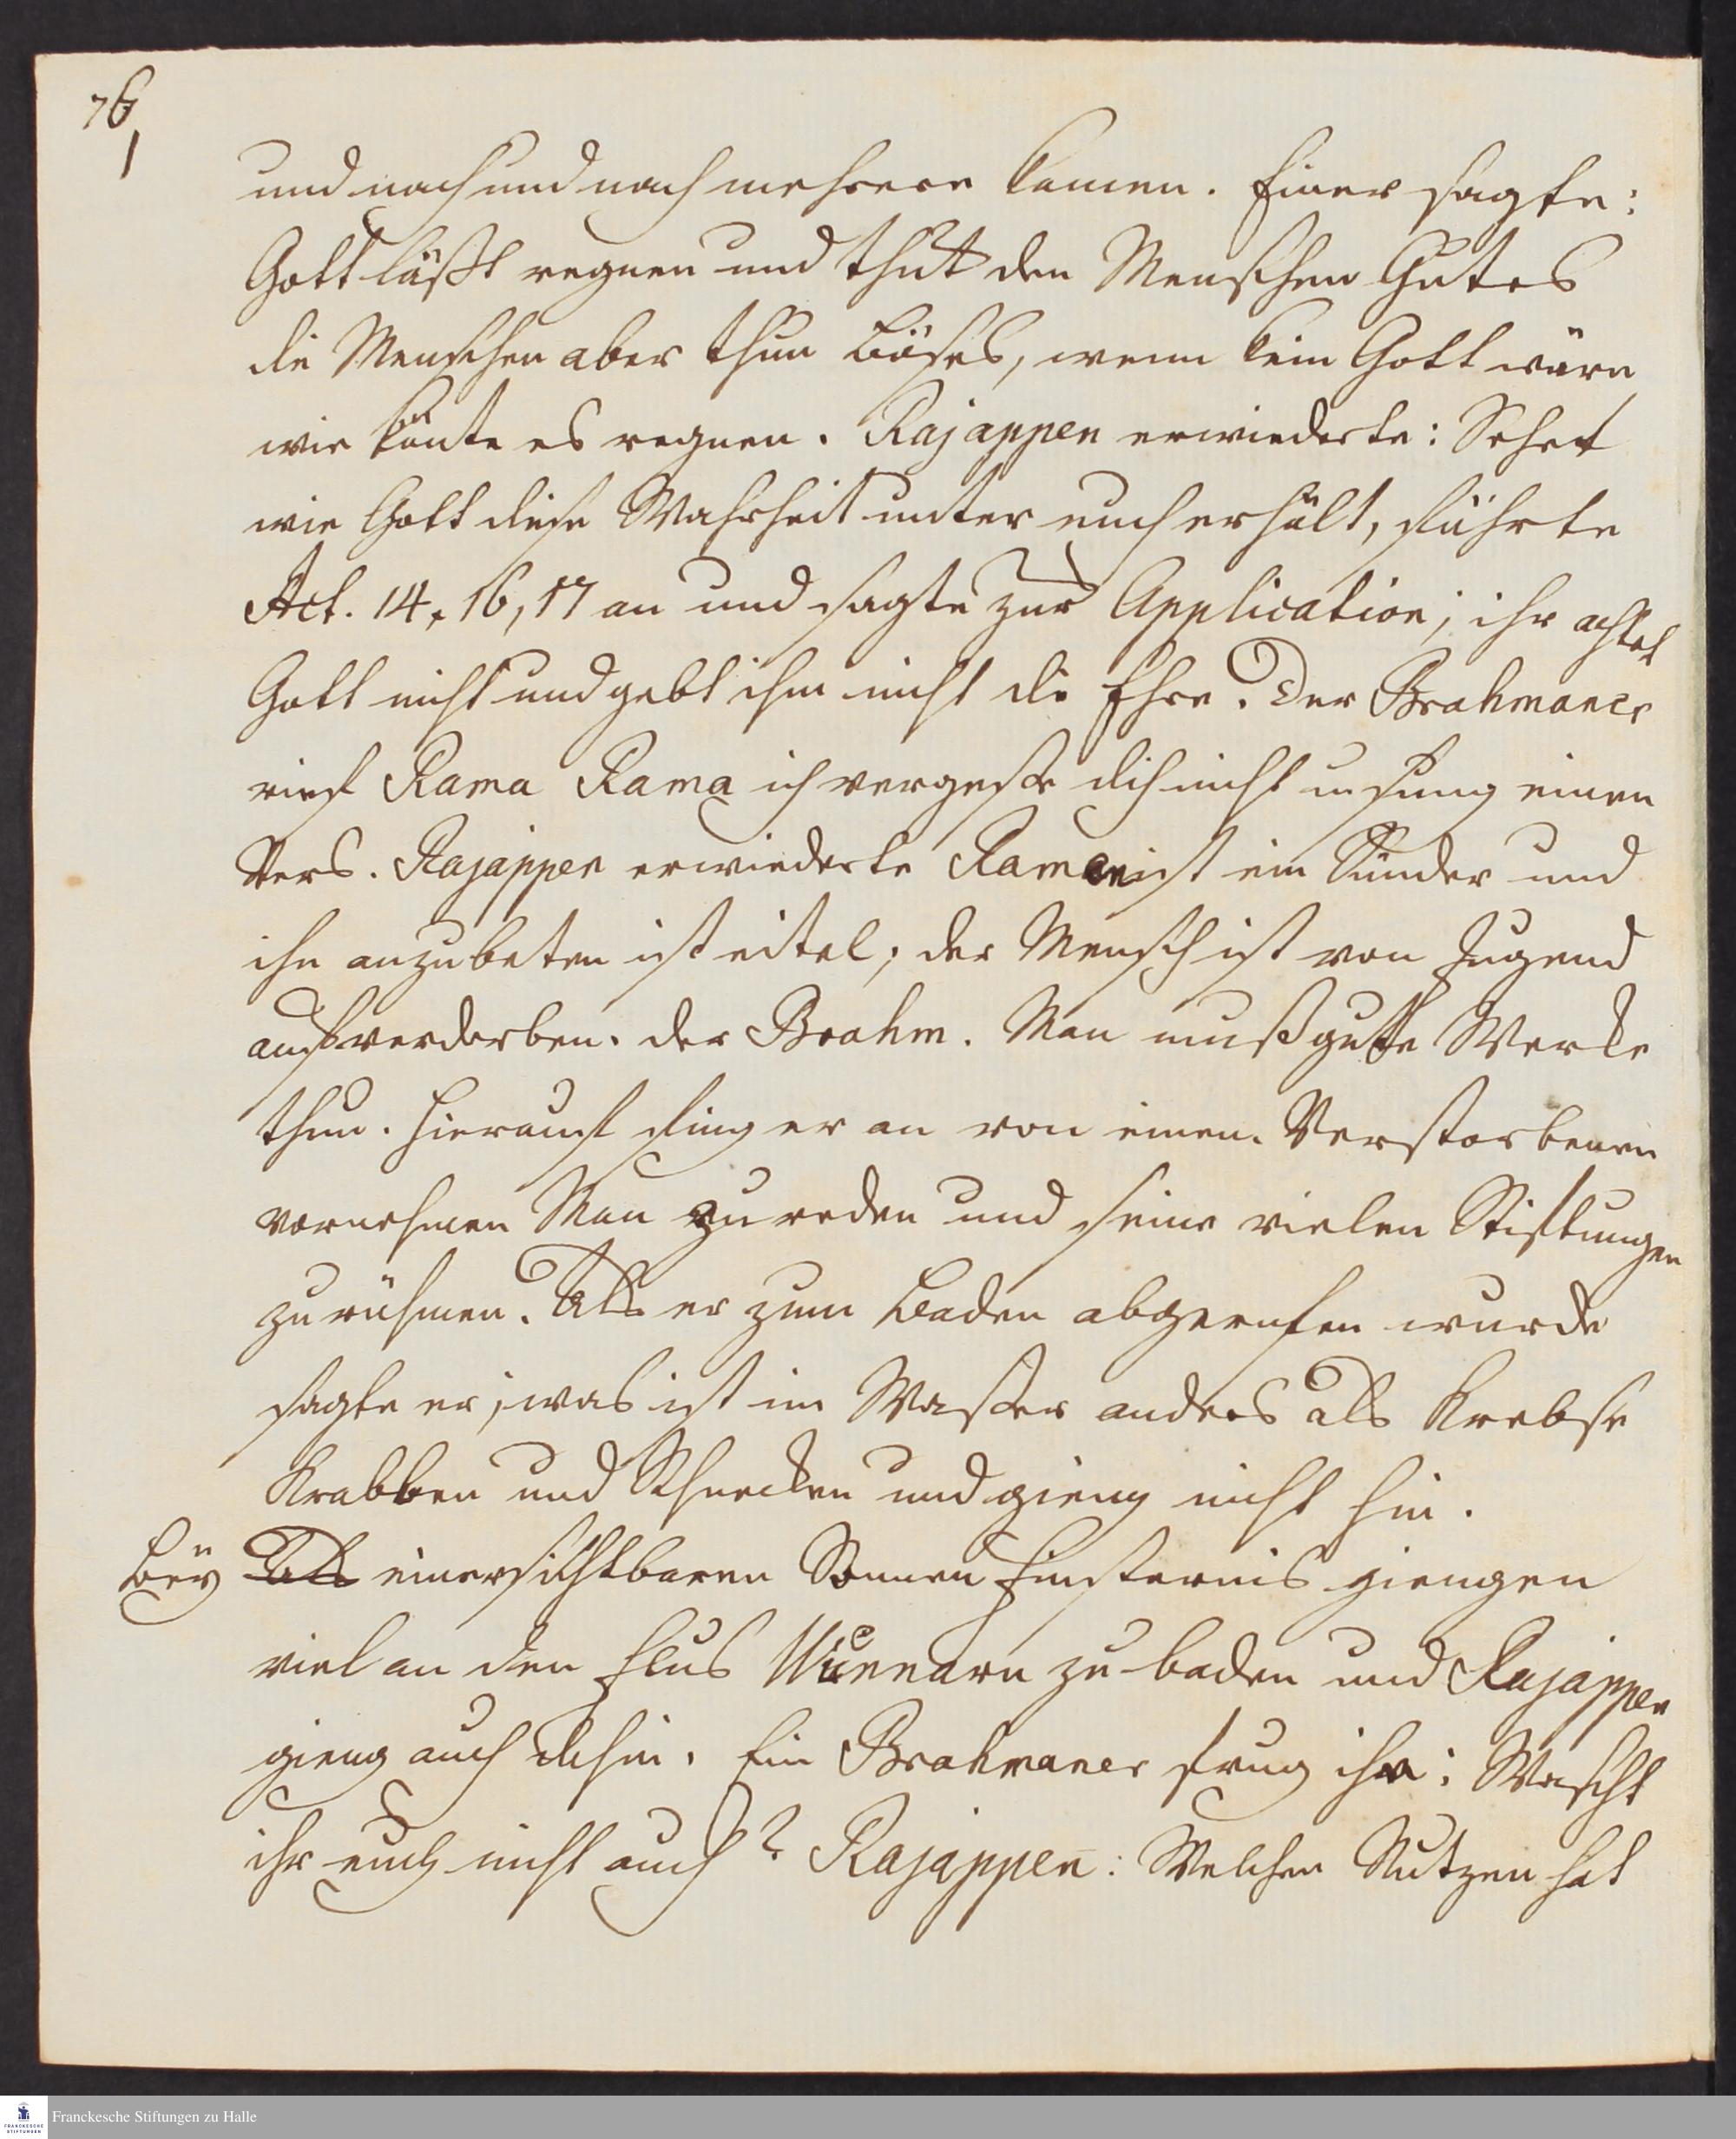 76
1
und nach und nach mehrere kamen. Einer sagte:
Gott läßt regnen und thut den Menschen Gutes
die Menschen aber thun Böses, wenn kein Gott wäre
wie könte es regnen. Rajappen erwiederte: Sehet
wie Gott diese Wahrheit unter euch erhält, führte
Act. 14, 16, 17 an und sagte zur Application; ihr achtet
Gott nicht und gebt ihm nicht die Ehre. Der Brahmaner
rief Rama Rama ich vergesse dich nicht u. sung einen
Vers. Rajappen erwiederte Ramen ist ein Sünder und
ihn anzubeten ist eitel; der Mensch ist von Jugend
auf verdorben. der Brahm. Man muß gute Werke
thun. Hierauf fing er an von einem Verstorbenen
vornehmen Man zu reden und seine vielen Stiftungen
zu rühmen. Als er zum Baden abgerufen wurde
sagte er; was ist im Wasser anders als Krebse
Krabben und Schnecken und gieng nicht hin.
Bey Als einer sichtbaren Sonnen Finsternis giengen
viel an den Flus zu baden und Rajappen
gieng auch dahin. Ein Brahmaner frug ihn: Wascht
ihr euch nicht auch? Rajappen: Welchen Nutzen hat
Franckesche Stiftungen zu Halle
FRANCKESCHE
STIFTUNGEN